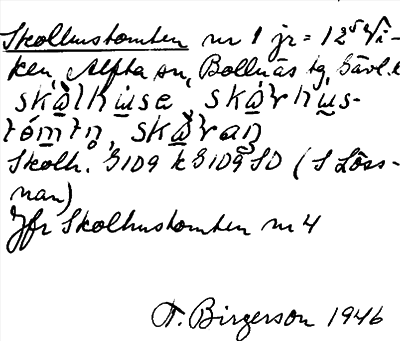 Skolhustomten nr 1 jr = 12⁵ Vi-
ken, Alfta sn, Bollnäs tg, Gävl.l.
skà̱lhu̱sa, ská̱rhu̱s-
tómtn̥, ská̱ran̥
Skolh. G109 k G109 SO (S Löss-
nan)
Jfr Skolhustomten nr 4
A. Birgerson 1946